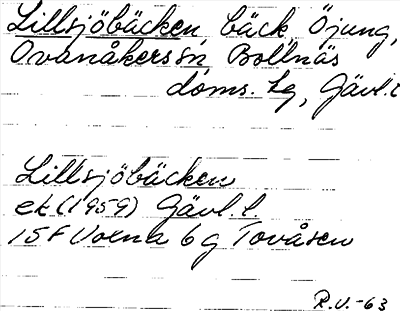 Lillsjöbäcken, bäck, Öjung,
Ovanåkers sn, Bollnäs
doms. lg, Gävl. l
Lillsjöbäcken
ek (1959) Gävl. l.
15 F Voxna 6 g Tovåsen
R.V.-63